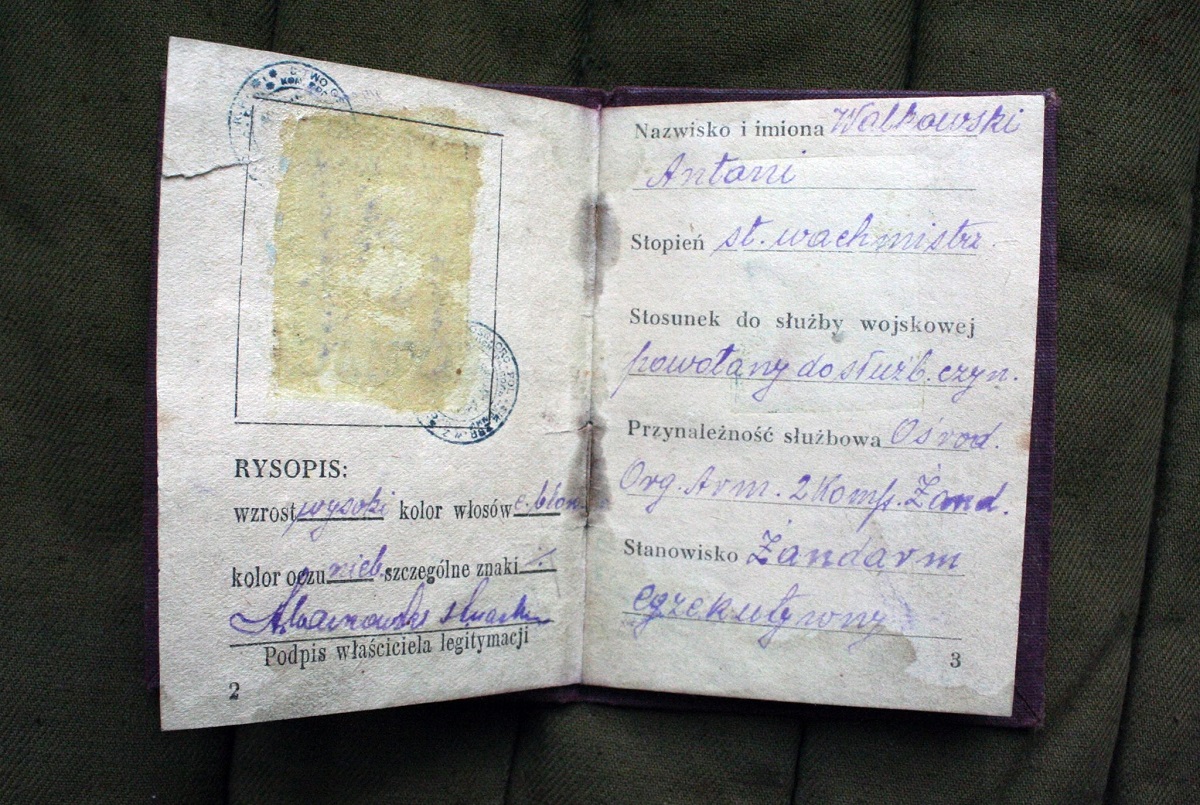 RYSOPIS:
wzrost wysoki kolor włosów c. blon
kolor oczu nieb. szczególne znaki ./.
Podpis właściciela legitymacji
2
Nazwisko i imiona Walkowski
Antoni
Stopień st. wachmistrz.
Stosunek do służby wojskowej
powołany do służb. czyn.
Przynależność służbowa Ośrod.
Org. Arm. 2 Komp. Żand.
Stanowisko Żandarm
egzekutywny
3